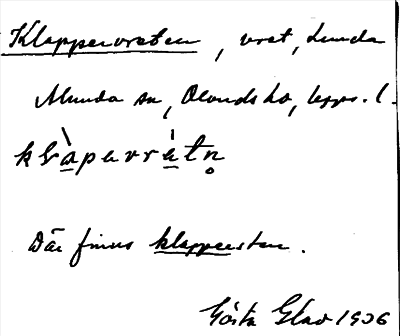 Klappervreten, vret, Lunda
Munda sn, Olandsho, Upps. l.
klàpavrátn̥
Där finns klappersten.
Gösta Glav 1936